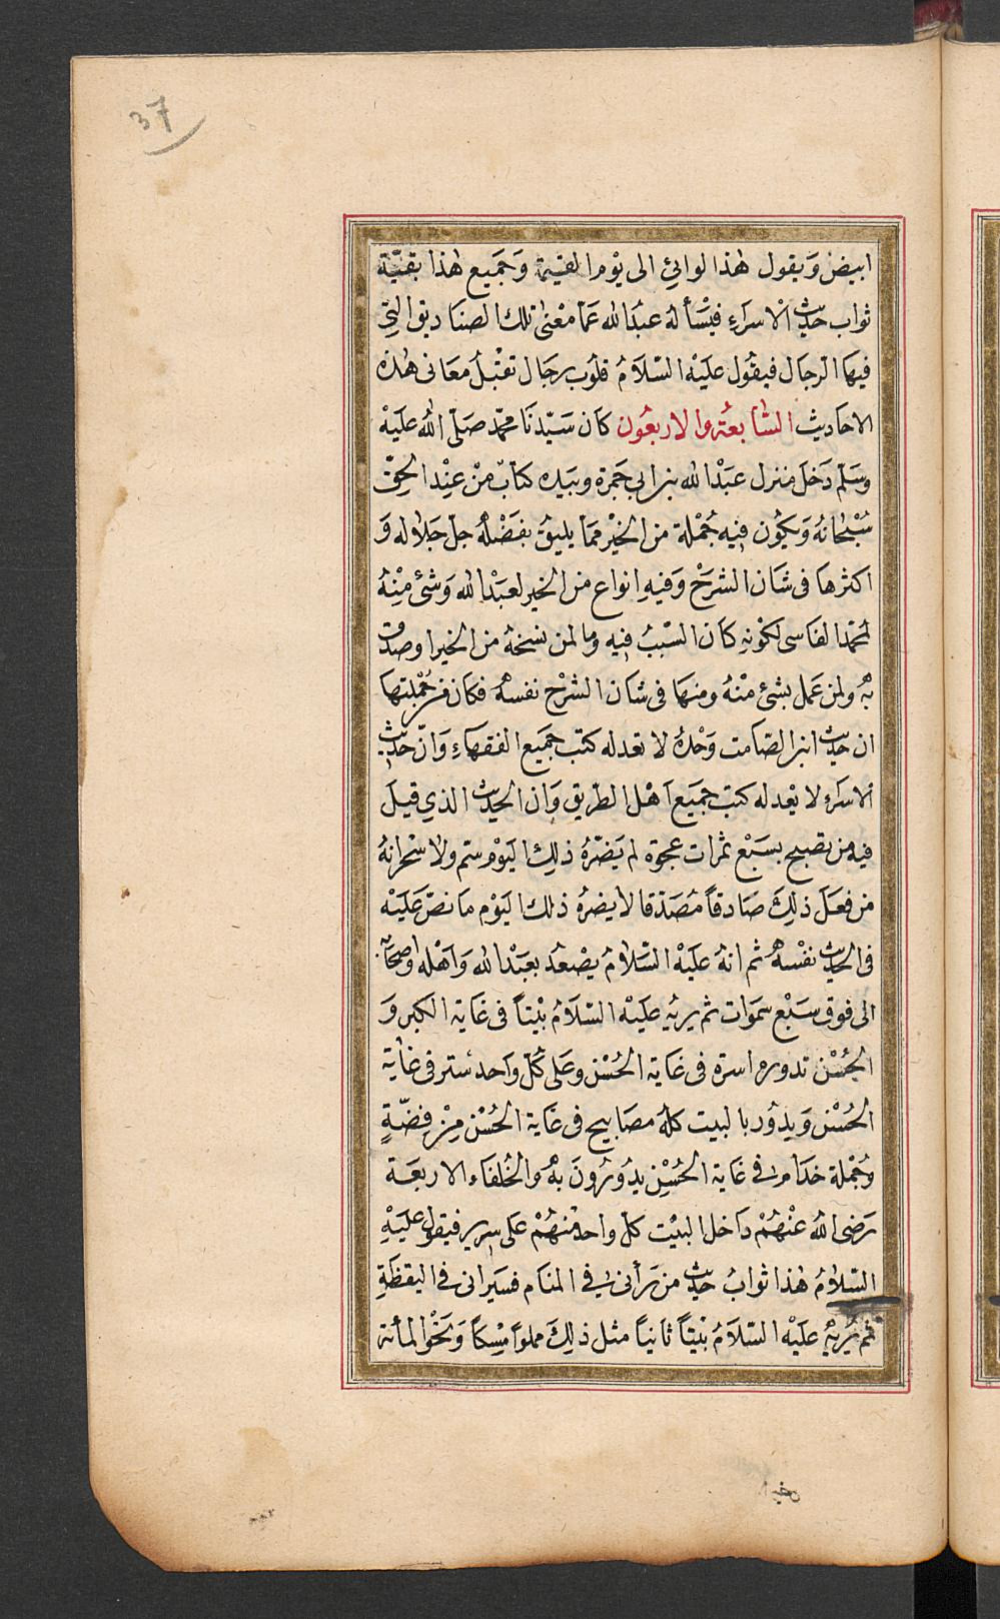 37
ابيض وَيقول هٰذا لوائي الى يوْم القيمة وَجَميع هٰذا بقيّة
ثواب حديث الْاسراءِ فيَسْألهُ عبدالله عَمّا معْنى تلك الصنَاديق التِى
فيهَا الرجَال فيقول علَيْه السّلَامُ قلوُب رجَال تقبَلُ معَانى هٰذه
الاحَاديث السّابعَة والاربعُون كانَ سَيّدنَا محمّد صَلّى اللهُ عليَْه
وسَلّم دَخلَ منزل عبَدْالله بن ابي جَمرة وبيَده كتابٌ منْ عنِد الحِقّ
سُبْحانهُ وَيكوُن فيه جُمْلة من الخيْر ممّا يليقُ بفَضْله جلّ جَلاله وَ
اكثرهَا فى شَان الشرَحْ وَفيهِ انواع من الخير لعبَدْالله وَشئ منِْهُ
لمحَمّد الفاسى لكوْنهِ كاَن السّببُ فيهِ وما لمن نسَخهُ من الخيرا وصدق
بهِ ولمن عَمل بشئ منْهُ ومنهَا فى شَان الشرْح نفسهُ فكان من جُمْلتها
ان حديث ابن الصّامت وَحْدهُ لا تعدله كتب جميَع الفقهاءِ وَانّ حديث
الاسراء لا يعْدله كتب جميَع اهْل الطريق وَان الحديث الذي قيل
فيه من تصبح بسَبْع تمرات عجوَة لم يَضرّهُ ذلِك اليَوْم سم ولا سْحرانهُ
من فعَلَ ذلِكَ صَادقاً مُصَدّقا لايضرهُ ذلك اليَوْم مَا نصّ عَليَْه
فى الحديث نفْسهُ ثم انهُ علَيْه السّلامُ يصْعدُ بعبَدْالله وَاهْله واصحابه
الى فوق سَبْع سموَات ثم يريْهِ عليَْه السّلَامُ بيْتاً فى غَاية الكبر وَ
الحُسْن تدوره اسرة فى غَاية الحُسْن وعَلى كلّ واحد ستر فى غاية
الحُسْن وَيدُور بالبيت كلهُ مصَابيح فى غَاية الحُسْن مِنْ فِضّةٍ
وَجُمْلة خدّام فى غاية الحُسْنِ يدُورُونَ بهِ والخُلفَاء الاربعَة
رَضى اللهُ عَنْهُمْ دَاخل البيْت كلّ واحد منهُمْ على سرير فيقول عليَْهِ
السّلامُ هٰذا ثوابُ حديث من رَأنى فى المنَام فسَيرانى فى اليقظَةِ
ثم يُريْهِ علَيْه السّلَامُ بيْتاً ثانياً مثل ذلِكَ مملواً مِسْكاً وَنحْو المأئة